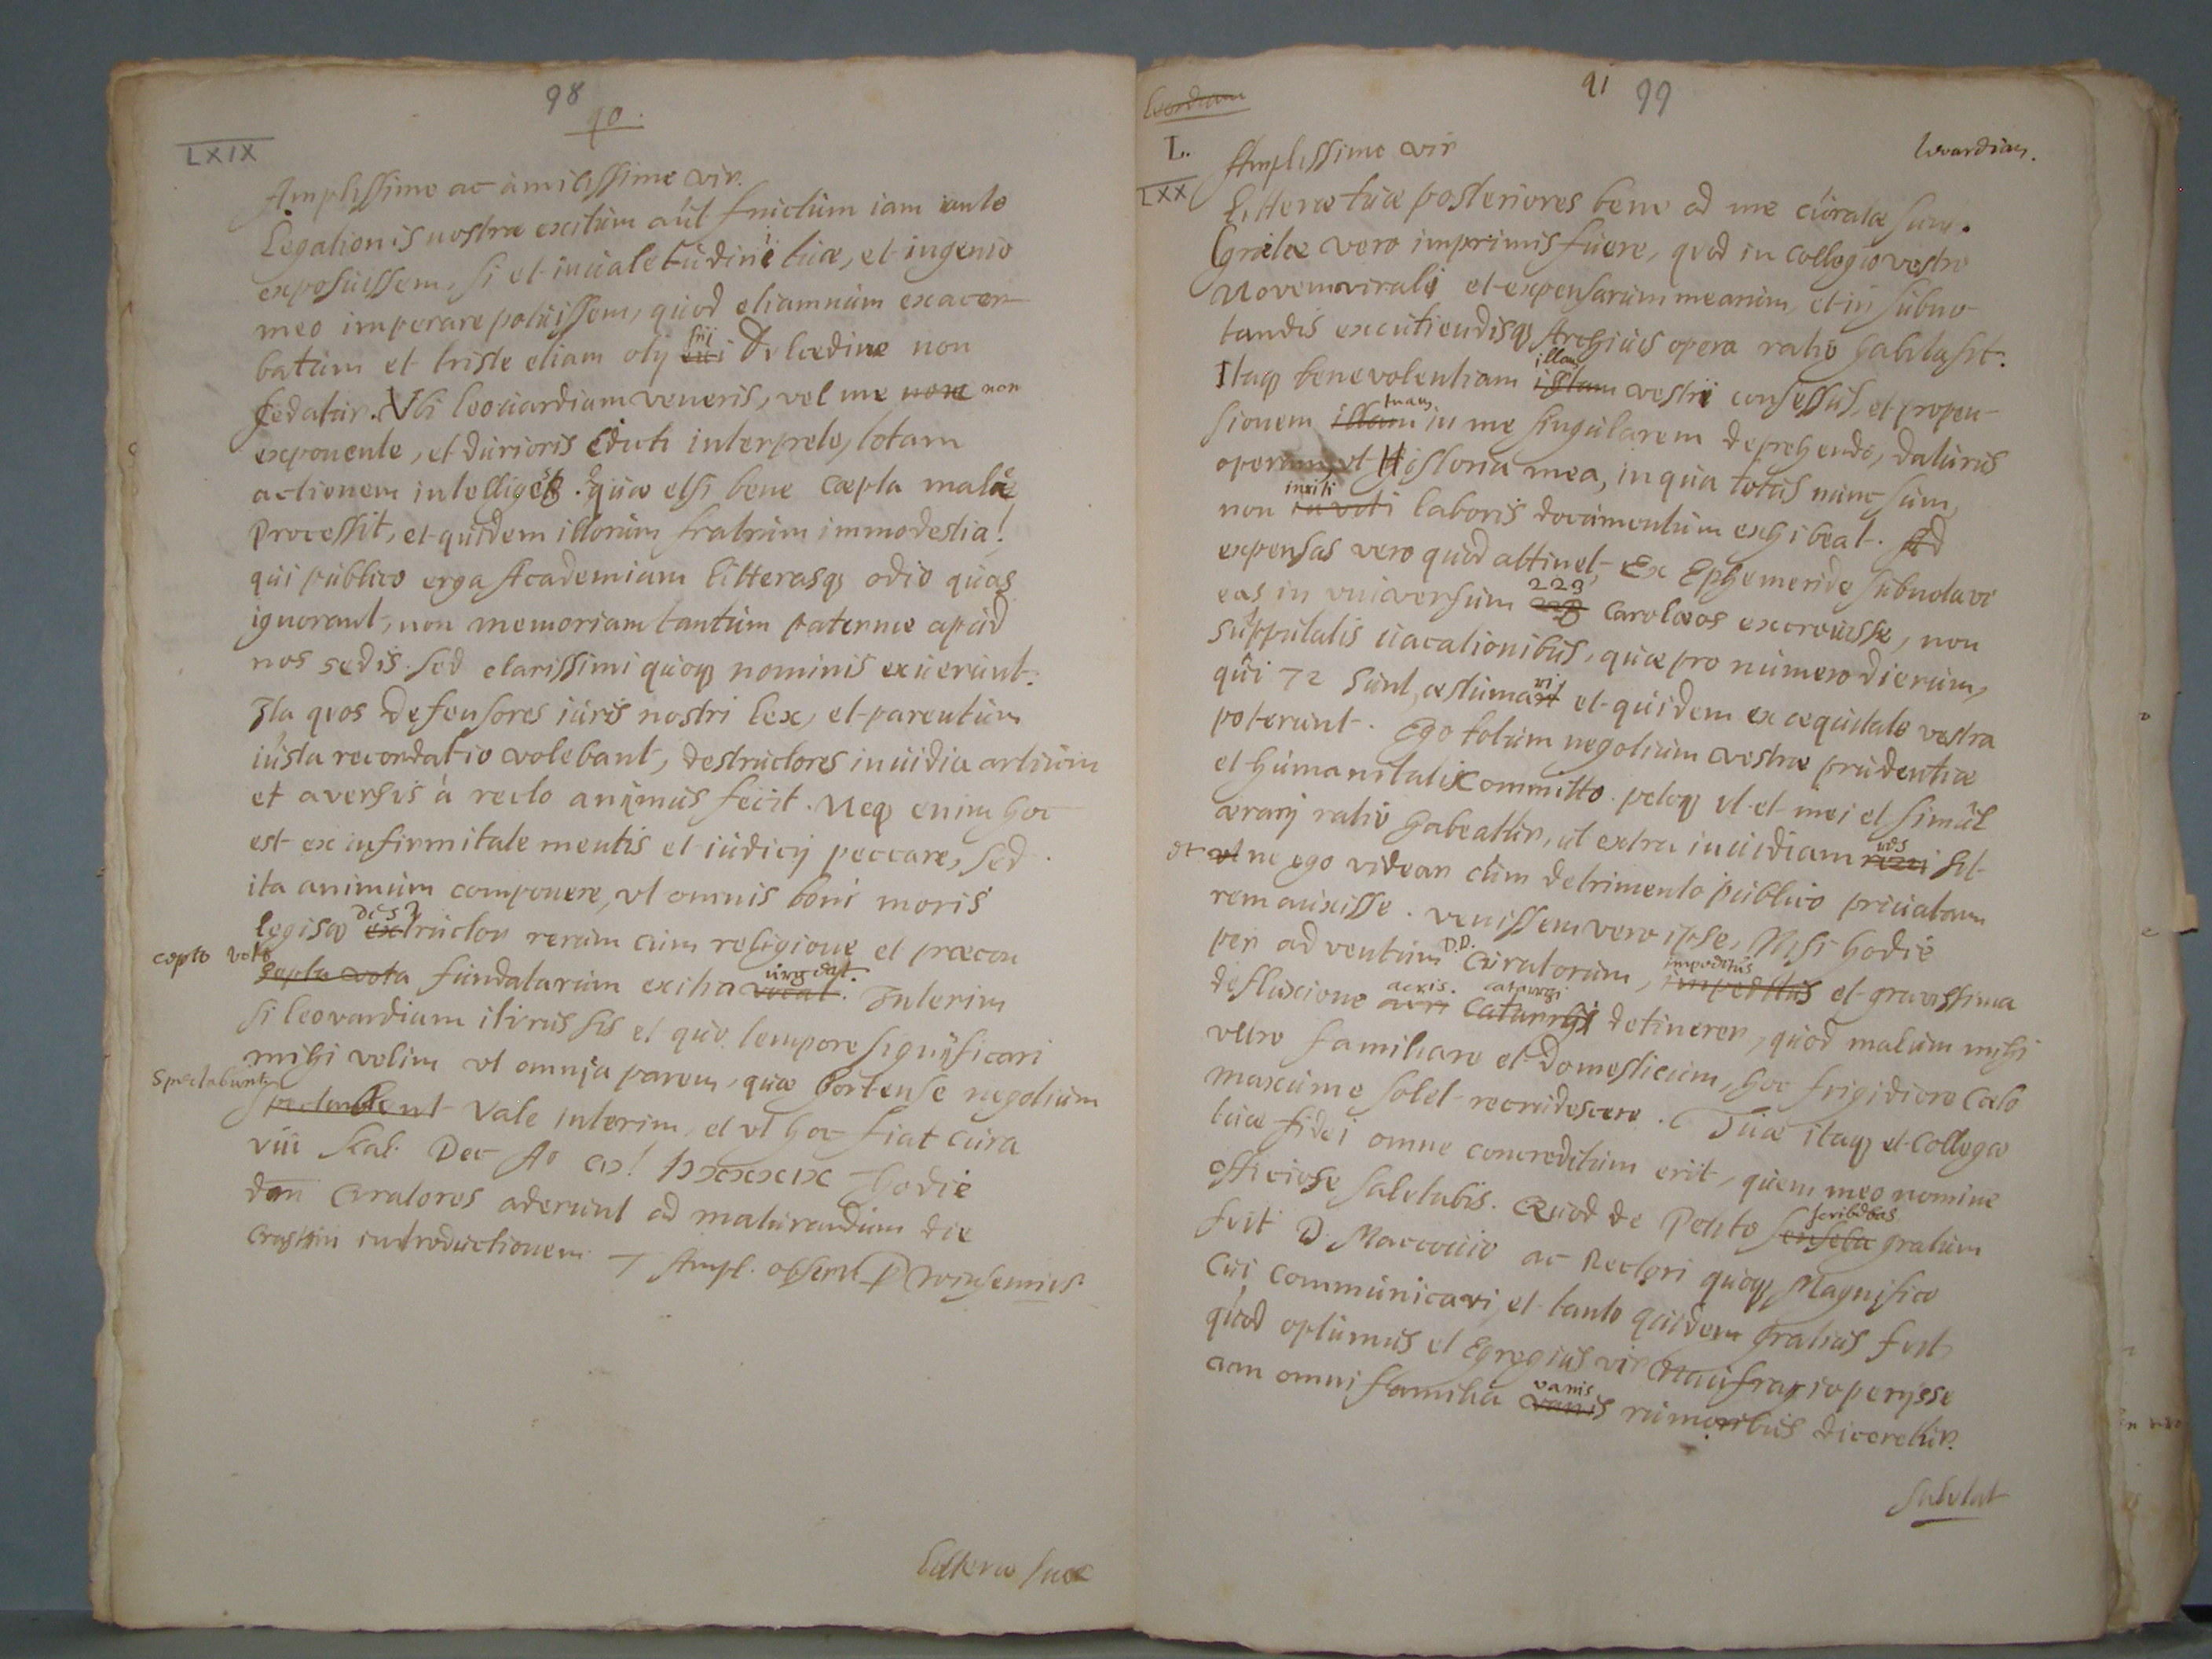 98
90.
LXIX
Amplissime ac amicissime vir.
Legationis nostræ exitum aut fructum iam ante
exposuissem, si et inualetudini tuæ, et ingenio
meo imperare potuissem, quod etiamnum exacer-
batum et triste etiam otij sui dulcedine non
sedatur. Vbi leouardiam veneris, vel me non non
exponente, et durioris Edicti interprete, totam
actionem intelliges. quæ etsi bene cæpta male
processit, et quidem illorum fratrum immodestia!
qui publico erga Academiam litterasq odio quas
ignorant, non memoriam tantum paternæ apud
nos sedis. sed clarissimi quoq nominis exuerunt.
Ita quos defensores iuris nostri lex, et parentum
iusta recordatio volebant, destructores inuidia artium
et aversus à recto animus fecit. Neq enim hoc
est ex infirmitate mentis et iudicij peccare, sed
ita animum componere, vt omnis boni moris
legisq extructor des rerum cum religione et præcon
cepto voto
cepta vota fundatarum exitia vocat urgeat. Interim
si leovardiam iturus sis et quo tempore significari
mihi velim vt omnia parem, quæ hortense negotium
spectabunt
Vale interim, et vt hoc fiat cura
viii Kal. Dec Ao hodie
dnn Curatores aderunt ad maturandum die
crastini introductionem T Ampl. observ. P Winsemius.
Litteræ tuæ
91 99
Leovardiam
L.
Leuardiam.
LXX
Amplissime vir
Litteræ tuæ posteriores bene ad me curatæ sunt.
Gratæ vero imprimis fuere, quod in collegio vestro
Novemvirali et expensarum mearum, et in subno-
tandis excutiendisq Archiuis opera ratio habita sit.
Itaq benevolentiam istam illam vestri consessus, et propen-
sionem illam tuam in me singularem deprehendi, daturus
operam, vt Historia mea, in qua totus nunc sum,
non inviti laboris documentum exhibeat. Ad
expensas vero quod attinet, Ex Ephemeride subnotavi
eas in vniversum 229 Carolæos excrevisse, non
supputatis uacationibus, quæ pro numero dierum,
qui 72 sunt, æstumari et quidem ex æquitate vestra
poterunt. Ego totum negotium vestræ prudentiæ
et humanitati committo. petoq vt et mei et simul
ærarij ratio habeatur, ut extra inuidiam res sit
et vt ne ego videar cum detrimento publico priuatam
rem auxisse. venissem vero ipse, Nisi hodie
per adventum D.D. Curatorum, impeditus impeditus et gravissima
defluxione acri acris. catarrhi detinerer, quod malum mihi
vere familiare et domesticum, hoc frigidiore cælo
maxume solet recrudescere. Tuæ itaq et collegæ
tuæ fidei omne concreditum erit, quem meo nomine
officiose salutabis. Quod de Petito scribebas gratum
fuit D. Maccouio ac Rectori quoq Magnifico
cui communicavi, et tanto quidem gratius fuit
quod optumus et Egregius vir Naufragio perijsse
cum omni familia vanis vanis rumoribus diceretur.
Salutat